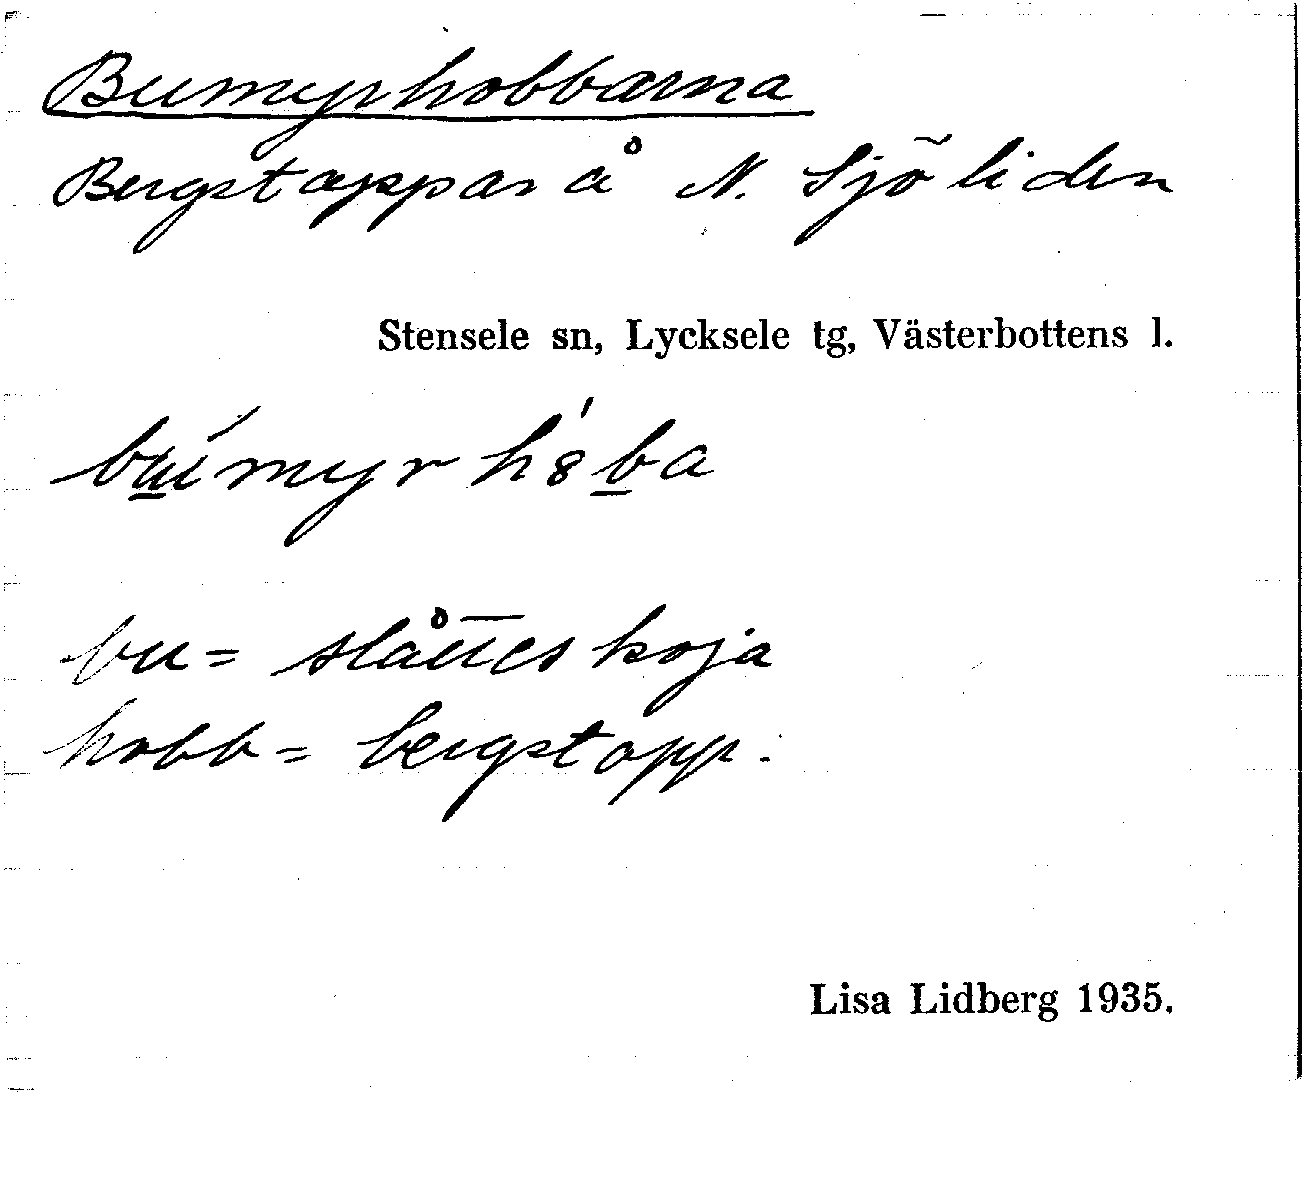 Bumyrhobbarna
Bergstoppar å N. Sjöliden
Stensele sn, Lycksele tg, Västerbottens l.
bu = slåtteskoja
hobb = bergstopp.
Lisa Lidberg 1935.